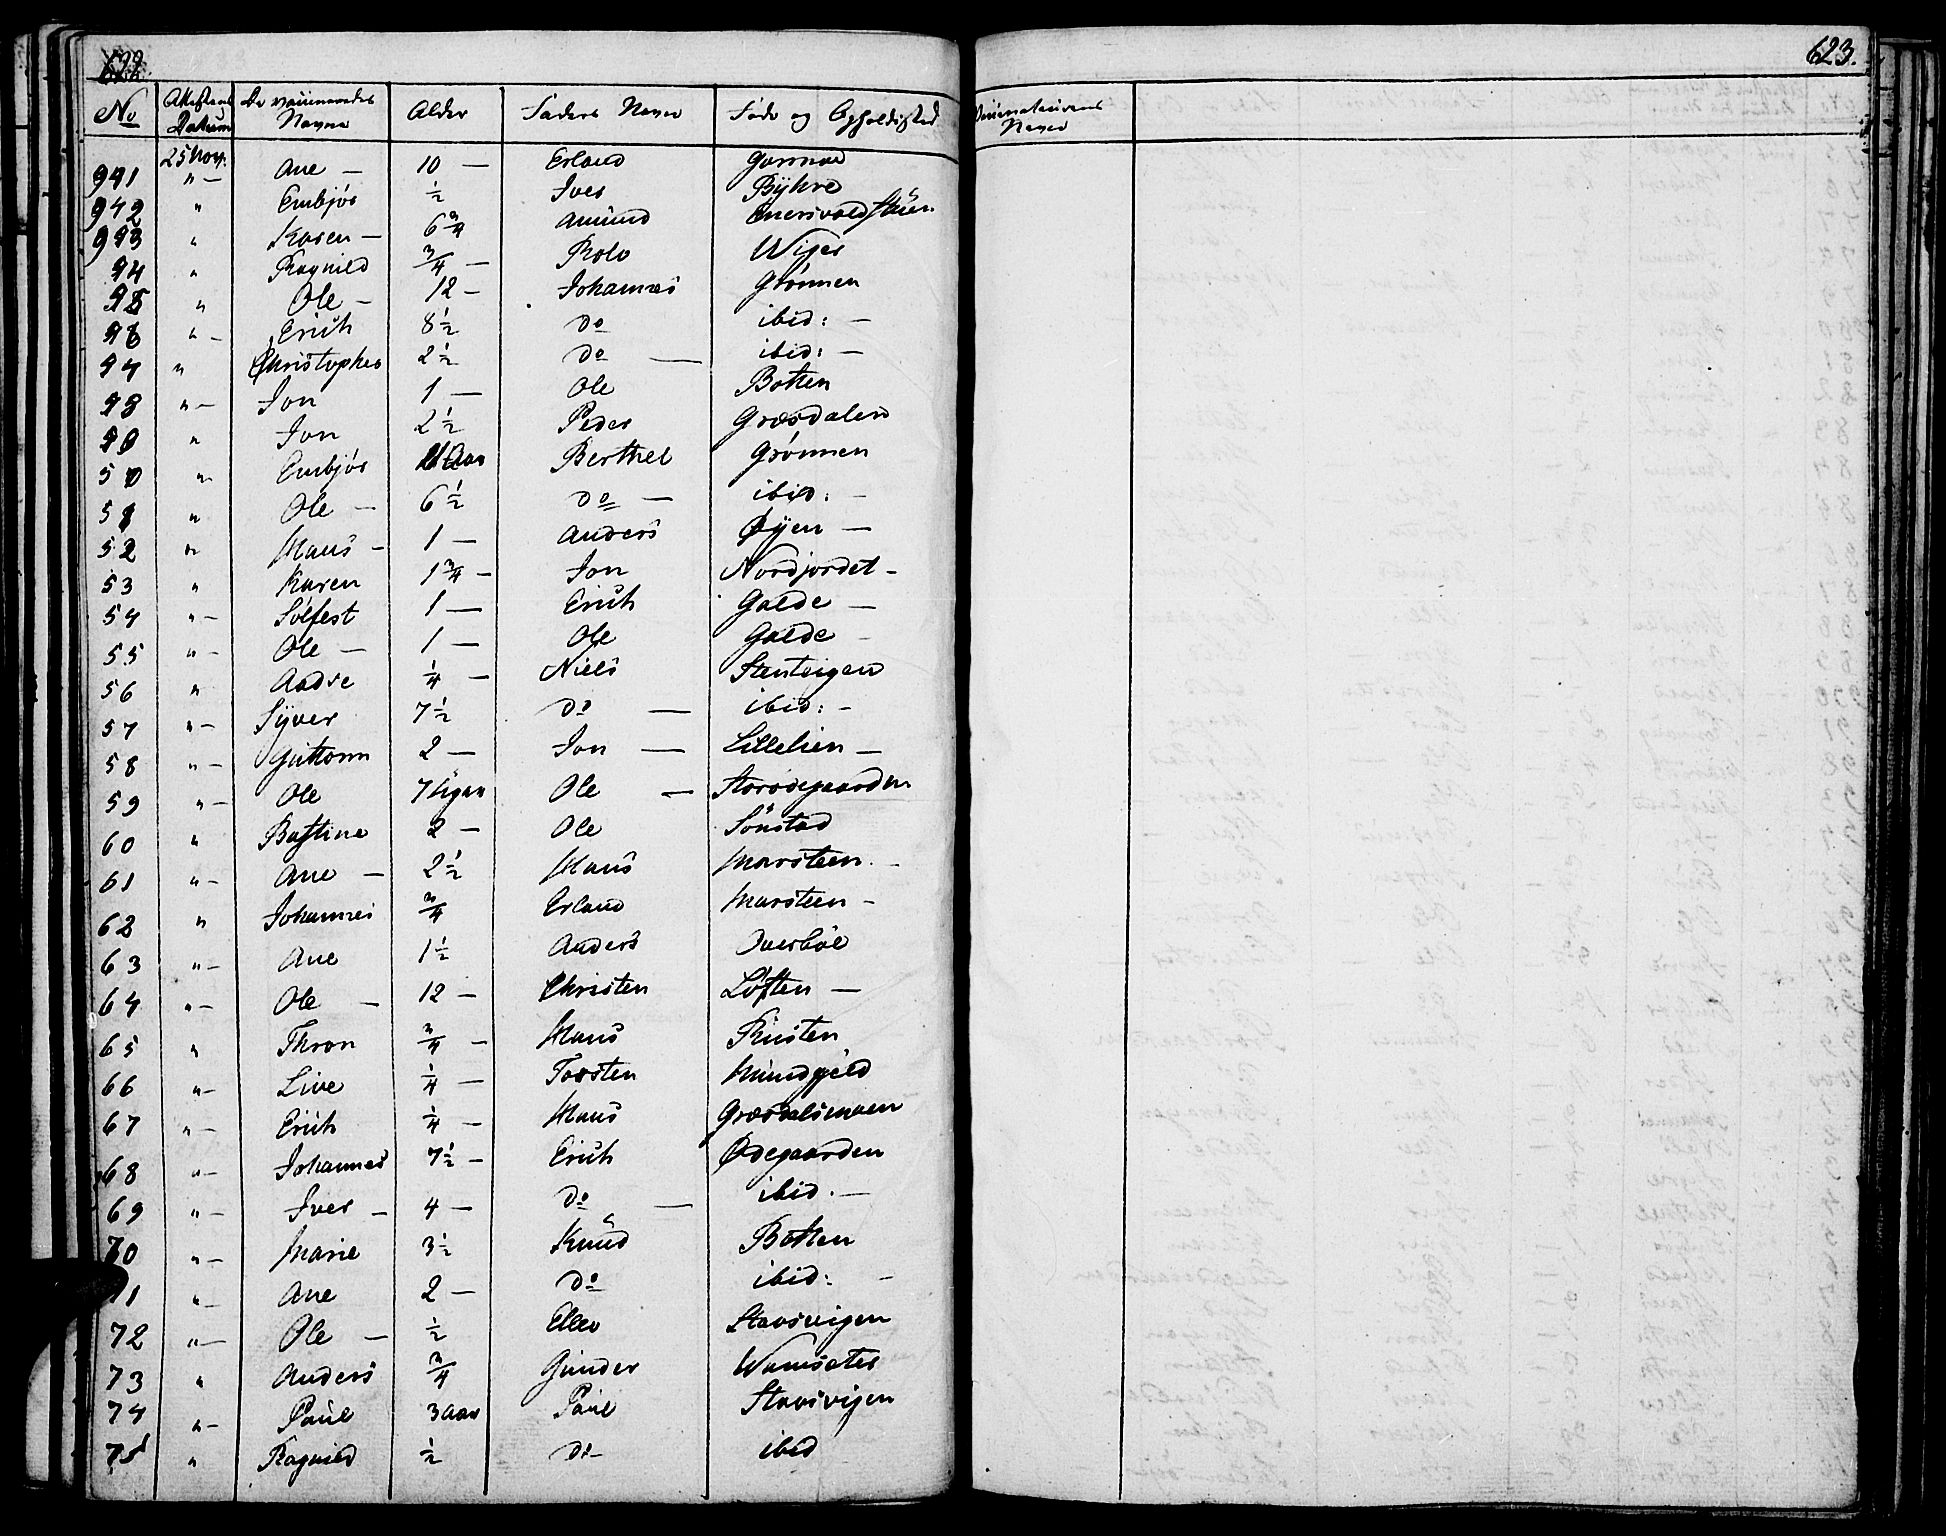 622.
No Attestens Datum De vaccineredes Navne Alder Faders Navn Føde og Opholdssted
25 Nov.
941 " — Ane — 10 — Erland Garmoe
942 " Embjør ½ Iver Byhre
943 " Karen — 6¾ Amund
44 " Ragnild ¾ — Rolv Wiger
45 " Ole — 12 — Johannes Grönnen
46 " — Erich 8½ Do ibid: —
47 " Christopher 2½ Do — ibid: —
48 " — Jon 1 — Ole Botten
49 " Jon 2½ Peder Græsdalen
50 " Embjør Berthel Grönnen
51 " Ole — 6½ Do — ibid: —
52 " Hans — 1 — Anders Øyen —
53 " Karen 1¾ — Jon Nordjordet —
54 " — Sølfest 1 — Erich Galde —
55 " — Ole — 1 — Ole Galde —
56 " Aadne ¼ — Niels Stenteigen
57 " — Syver 7½ Do — ibid: —
58 " — Guttorm 2 — Jon — Lillelien —
59 " — Ole 7 Ugen Ole — Storødegaarden
60 " Bastine 2 — Ole Sönstad
61 " — Ane — 2½ Hans Marsteen —
62 " Johannes ¾ Erland Marsteen —
63 " — Ane 1½ Anders Overböe
64 " — Ole — 12 — Christen Løften —
65 " Thron ¾ — Hans Rusten
66 " — Live ¼ — Torsten Mundgjeld
67 " — Erich ¼ — Hans Græsdalsmoen
68 " — Johannes 7½ — Erich Ødegaarden
69 " — Iver — 4 — Do — ibid. —
70 " — Marie 3½ Knud Botten
71 " — Ane 2 — Do ibid: —
72 " — Ole — ½ Ellev Stavsvigen
73 " Anders ¾ Gunder
74 " — Paul 3 Aar Paul Stavsvigen
75 " Ragnild ½ Do — ibid
623.
Vaccinateurens Navn